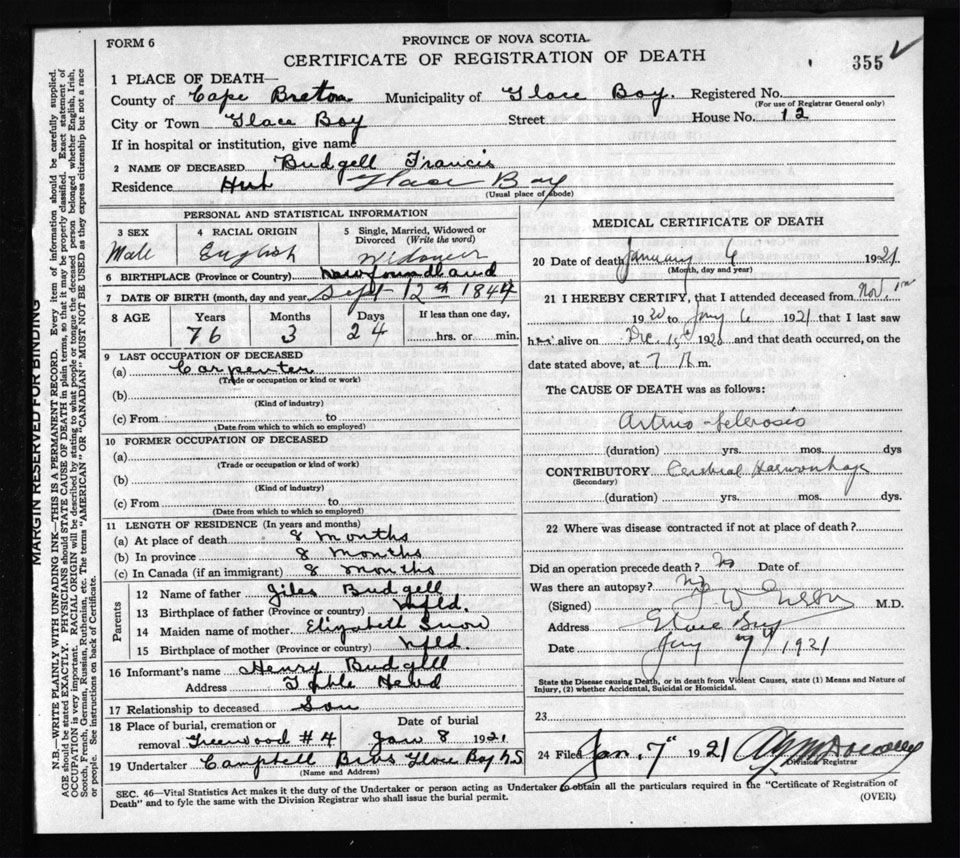 FORM 6
PROVINCE OF NOVA SCOTIA
CERTIFICATE OF REGISTRATION OF DEATH
355
1 PLACE OF DEATH—
County of Cape Breton Municipality of Glace Bay. Registered No.
(For use of Registrar General only)
City or Town Glace Bay Street House No. 12
If in hospital or institution, give name
2 NAME OF DECEASED Budgell Francis
Residence Hub Glace Bay
(Usual place of abode)
PERSONAL AND STATISTICAL INFORMATION
3 SEX
Male
4 RACIAL ORIGIN
English
5 Single, Married, Widowed or Divorced (Write the word)
Widower
6 BIRTHPLACE (Province or Country) Newfoundland
7 DATE OF BIRTH (month, day and year) Sept 12th 1844
8 AGE Years Months Days If less than one day,
76 3 24 hrs. or min.
9 LAST OCCUPATION OF DECEASED
(a) Carpenter
(Trade or occupation or kind or work)
(b)
(Kind of industry)
(c) From to
(Date from which to which so employed)
10 FORMER OCCUPATION OF DECEASED
(a)
(Trade or occupation or kind of work)
(b)
(Kind of industry)
(c) From to
(Date from which to which so employed)
11 LENGTH OF RESIDENCE (In years and months)
(a) At place of death 8 months
(b) In province 8 months
(c) In Canada (if an immigrant) 8 months
Parents
12 Name of father Giles Budgell
13 Birthplace of father (Province or country) Nfld.
14 Maiden name of mother Elizabeth Snow
15 Birthplace of mother (Province or country) Nfld.
16 Informant's name Henry Budgell
Address Table Head
17 Relationship to deceased Son
18 Place of burial, cremation or Date of burial
removal Greenwood # 4 Jan 8 1921
19 Undertaker Campbell Bros Glace Bay N.S
(Name and Address)
MEDICAL CERTIFICATE OF DEATH
20 Date of death January 6 1921
(Month, day and year)
21 I HEREBY CERTIFY, that I attended deceased from Nov.
1920 to Jany 6 1921 that I last saw
h alive on Dec. 15th 1920 and that death occurred, on the
date stated above, at 7 m.
The CAUSE OF DEATH was as follows:
Arterio-Sclerosis
(duration) yrs. mos. dys
CONTRIBUTORY Cerebral Haemorrhage
(Secondary)
(duration) yrs. mos. dys.
22 Where was disease contracted if not at place of death?
Did an operation precede death? No Date of
Was there an autopsy? No
(Signed) M.D.
Address Glace Bay
Date Jany 7th 1921
State the Disease causing Death, or in death from Violent Causes, state (1) Means and Nature of
Injury, (2) whether Accidental, Suicidal or Homicidal.
23
24 Filed Jan. 7" 1921
Division Registrar
SEC. 46—Vital Statistics Act makes it the duty of the Undertaker or person acting as Undertaker to obtain all the particulars required in the "Certificate of Registration of
Death" and to fyle the same with the Division Registrar who shall issue the burial permit.
(OVER)
MARGIN RESERVED FOR BINDING
N.B.—WRITE PLAINLY WITH UNFADING INK—THIS IS A PERMANENT RECORD. Every item of information should be carefully supplied.
AGE should be stated EXACTLY. PHYSICIANS should STATE CAUSE OF DEATH in plain terms, so that it may be properly classified. Exact statement of
OCCUPATION is very important. RACIAL ORIGIN will be described by stating to what people or tongue the deceased person belonged whether English, Irish,
Scotch, French, German, Russian, Ruthenian, etc. The terms "AMERICAN" OR "CANADIAN" MUST NOT BE USED as they express citizenship but not a race
or people. See instructions on back of Certificate.